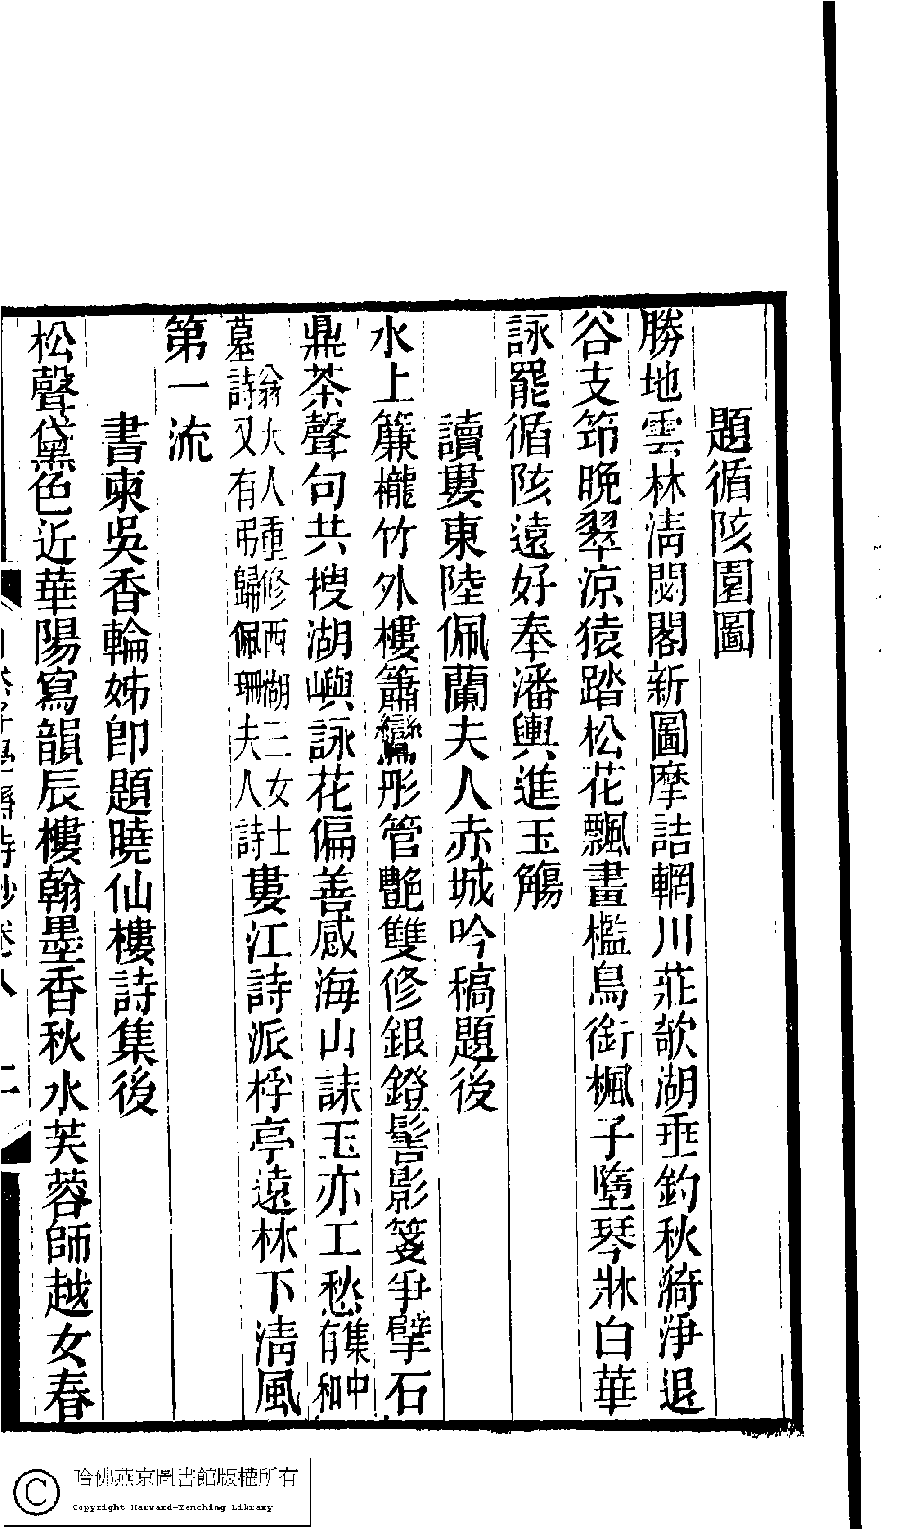 題循陔園圖
勝地雲林淸閟閣新圖摩詰輞川莊欹湖垂釣秋漪淨退
谷支笻晚翠涼猿踏松花飄畫檻鳥銜楓子墮琴牀白華
詠罷循陔遠好奉潘輿進玉觴
讀婁東陸佩蘭夫人赤城吟稿題後
水上簾櫳竹外樓簫鸞彤管艷雙修銀鐙髻影箋爭擘石
鼎茶聲句共搜湖嶼詠花偏善感海山誄玉亦工愁集中有和
翁大人重修西湖三女士墓詩又有弔歸佩珊夫人詩婁江詩派桴亭遠林下淸風
第一流
書柬吳香輪姊卽題曉仙樓詩集後
松聲黛色近華陽寫韻辰樓翰墨香秋水芙蓉師越女春
詩鈔卷八
二
哈佛燕京圖書館版權所有
Copyright Harvard-Yenching Library